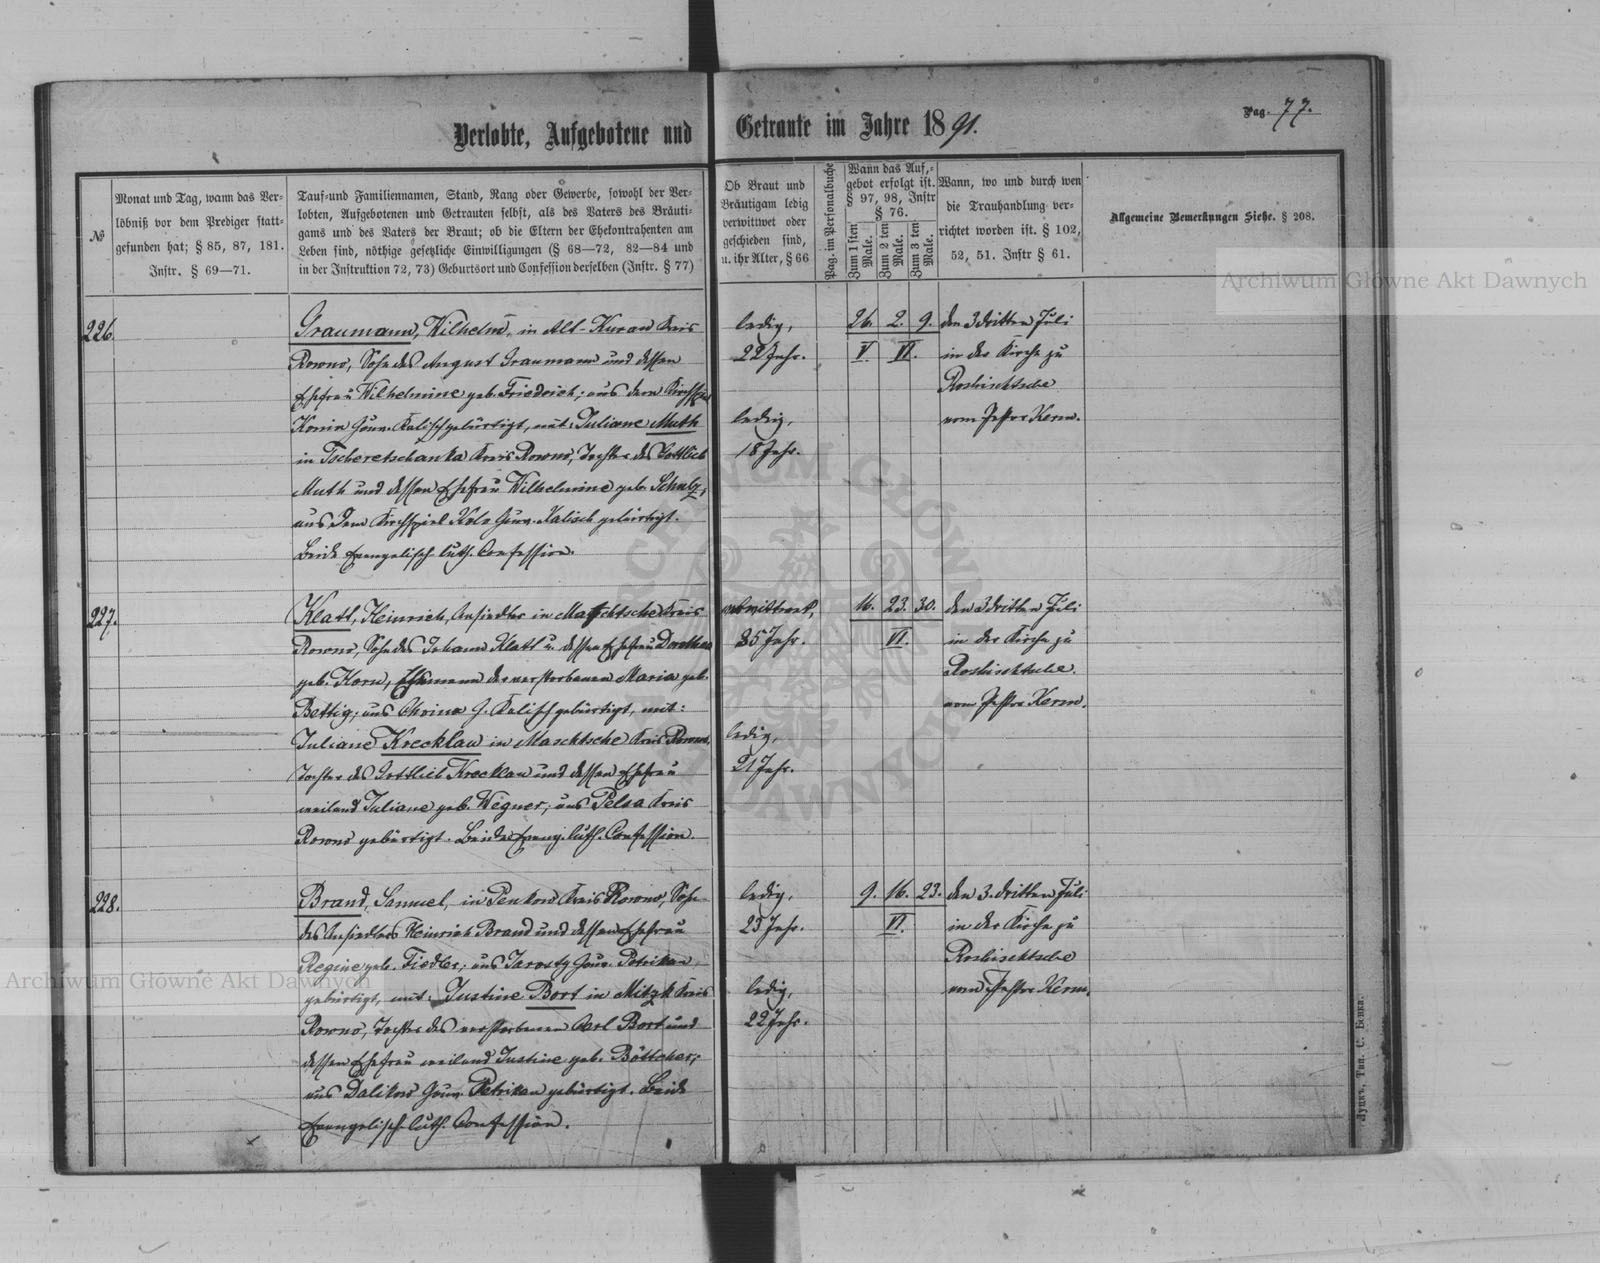 Verlobte, Aufgebotene und Getraute im Jahre 1891.
Pag. 77.
№
Monat und Tag, wann das Ver-
löbniß vor dem Prediger statt-
gefunden hat; § 85, 87, 181.
Instr. § 69—71.
Tauf-und Familiennamen, Stand, Rang oder Gewerbe, sowohl der Ver-
lobten, Aufgebotenen und Getrauten selbst, als des Vaters des Bräuti-
gams und des Vaters der Braut; ob die Eltern der Ehekontrahenten am
Leben sind, nöthige gesetzliche Einwilligungen (§ 68—72, 82—84 und
in der Instruktion 72, 73) Geburtsort und Confession derselben (Instr. § 77)
Ob Braut und
Bräutigam ledig
verwittwet oder
geschieden sind,
u. ihr Alter, § 66
Pag. im Personalbuche
Wann das Auf-
gebot erfolgt ist.
§ 97, 98, Instr
§ 76.
Zum 1 sten Male.
Zum 2 ten Male.
Zum 3 ten Male.
Wann, wo und durch wen
die Trauhandlung ver-
richtet worden ist. § 102,
52, 51. Instr § 61.
Allgemeine Bemerkungen Siehe. § 208.
Archiwum Główne Akt Dawnych
226.
Graumann, Wilhelm, in Alt-Kuran Kreis
Rowno, Sohn des August Graumann und dessen
Ehefrau Wilhelmine geb. Friedrich; aus dem Kirchspiel
Konin Gouv. Kalisch gebürtigt, mit: Juliane Muth
in Tscheretschanka Kreis Rowno, Tochter des Gottlieb
Muth und dessen Ehefrau Wilhelmine geb. Schulz,
aus dem Kirchspiel Kolo Gouv. Kalisch gebürtigt.
Beide Evangelisch luth. Confession.
ledig,
22 Jahr.
ledig,
18 Jahr.
26. 2. 9.
V. VI.
den 3 dritten Juli
in der Kirche zu
Roshischtsche
vom Pastor Kerm.
227.
Klatt, Heinrich, Ansiedler in Maschtsche Kreis
Rowno, Sohn des Johann Klatt u. dessen Ehefrau Dorothea
geb. Korn, Ehemann der verstorbenen Maria geb.
Bettig; aus Choina G. Kalisch gebürtigt, mit:
Juliane Krecklau in Maschtsche Kreis Rowno,
Tochter des Gottlieb Krecklau und dessen Ehefrau
weiland Juliane geb. Wegner; aus Pelza Kreis
Rowno gebürtigt. Beide Evang. luth. Confession.
verwittwet,
35 Jahr.
ledig,
21 Jahr.
16. 23. 30.
VI.
den 3 dritten Juli
in der Kirche zu
Roshischtsche.
vom Pastor Kerm.
228.
Brand, Samuel, in Penkow Kreis Rowno, Sohn
des Ansiedlers Heinrich Brand und dessen Ehefrau
Regine geb. Fiedler; aus Jarosty Gouv. Petrikau
gebürtigt, mit: Justine Bort in Mitzk Kreis
Rowno, Tochter des verstorbenen Carl Bort und
dessen Ehefrau weiland Justine geb. Böttcher;
aus Dalikow Gouv. Petrikau gebürtigt. Beide
Evangelisch luth. Confession.
ledig,
25 Jahr.
ledig,
22 Jahr.
9. 16. 23.
VI.
den 3. dritten Juli
in der Kirche zu
Roshischtsche
vom Pastor Kerm.
Archiwum Główne Akt Dawnych